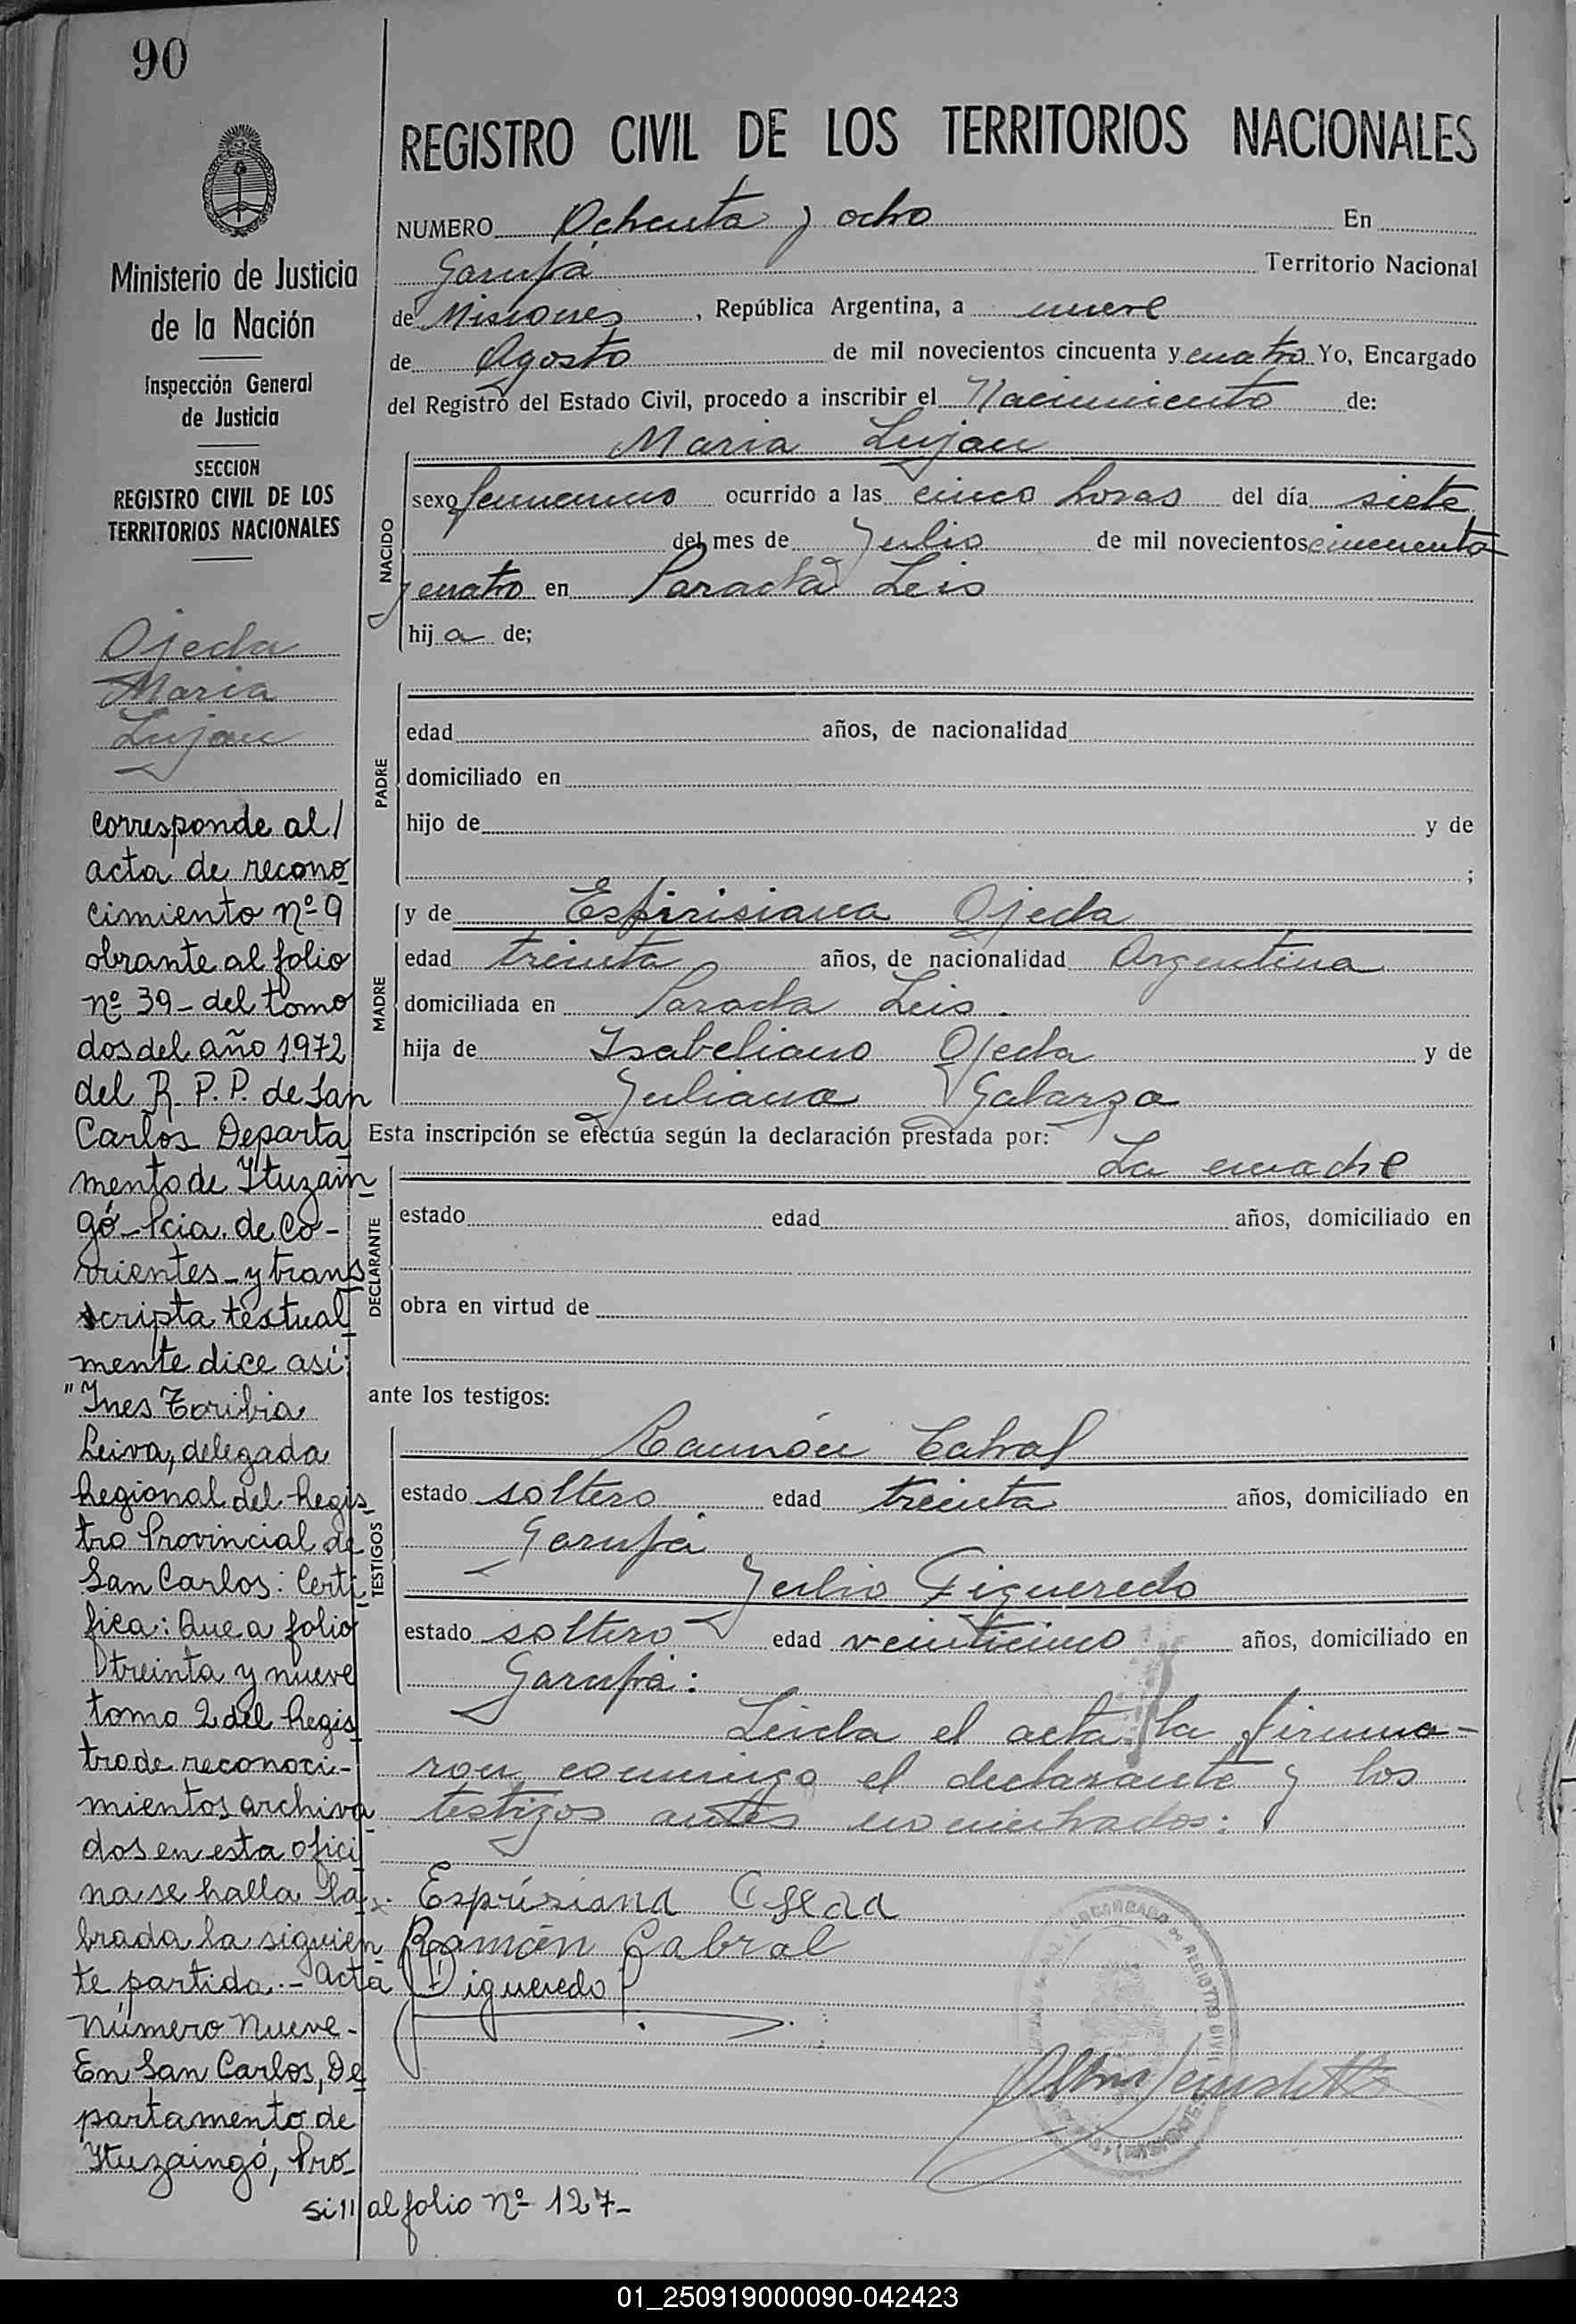 90
REGISTRO CIVIL DE LOS TERRITORIOS NACIONALES
Ministerio de Justicia
de la Nación
Inspección General
de Justicia
SECCION
REGISTRO CIVIL DE LOS
TERRITORIOS NACIONALES
Ojeda
Maria
Lujan
corresponde al/
acta de recono
cimiento nº 9
obrante al folio
nº 39- del tomo
dos del año 1972
del R. P. P. de San
Carlos Departa
mento de Ituzain
gó- Pcia. de Co-
rrientes- y trans
cripta textual
mente dice así:
"Ines Toribia
Leiva, delegada
Regional del Regis
tro Provincial de
San Carlos: Certi
fica: Que a folio
treinta y nueve
tomo 2 del Regis
tro de reconoci-
mientos archiva
dos en esta ofici
na se halla la
brada la siguien
te partida.- Acta
número nueve-
En San Carlos, De
partamento de
Ituzaingó, Pro-
NUMERO Ochenta y ocho En
Garupá Territorio Nacional
de Misiones, República Argentina, a nueve
de Agosto de mil novecientos cincuenta y cuatro Yo, Encargado
del Registro del Estado Civil, procedo a inscribir el Nacimiento de:
NACIDO
Maria Lujan
sexo femenino ocurrido a las cinco horas del día siete
del mes de Julio de mil novecientos cincuenta
y cuatro en Parada Leis
hij a de;
PADRE
edad años, de nacionalidad
domiciliado en
hijo de y de
;
MADRE
y de Espirisiana Ojeda
edad treinta años, de nacionalidad Argentina
domiciliada en Parada Leis.
hija de Isabeliano Ojeda y de
Juliana Galarza
Esta inscripción se efectúa según la declaración prestada por:
La madre
DECLARANTE
estado edad años, domiciliado en
obra en virtud de
ante los testigos:
TESTIGOS
Ramón Cabral
estado soltero edad treinta años, domiciliado en
Garupá
Julio Figueredo
estado soltero edad veinticinco años, domiciliado en
Garupá:
Leida el acta la firma-
ron conmigo el declarante y los
testigos antes nombrados:
Esprisiana Ojeda
Ramón Cabral
Figueredo
si// al folio nº 127-
01_250919000090-042423